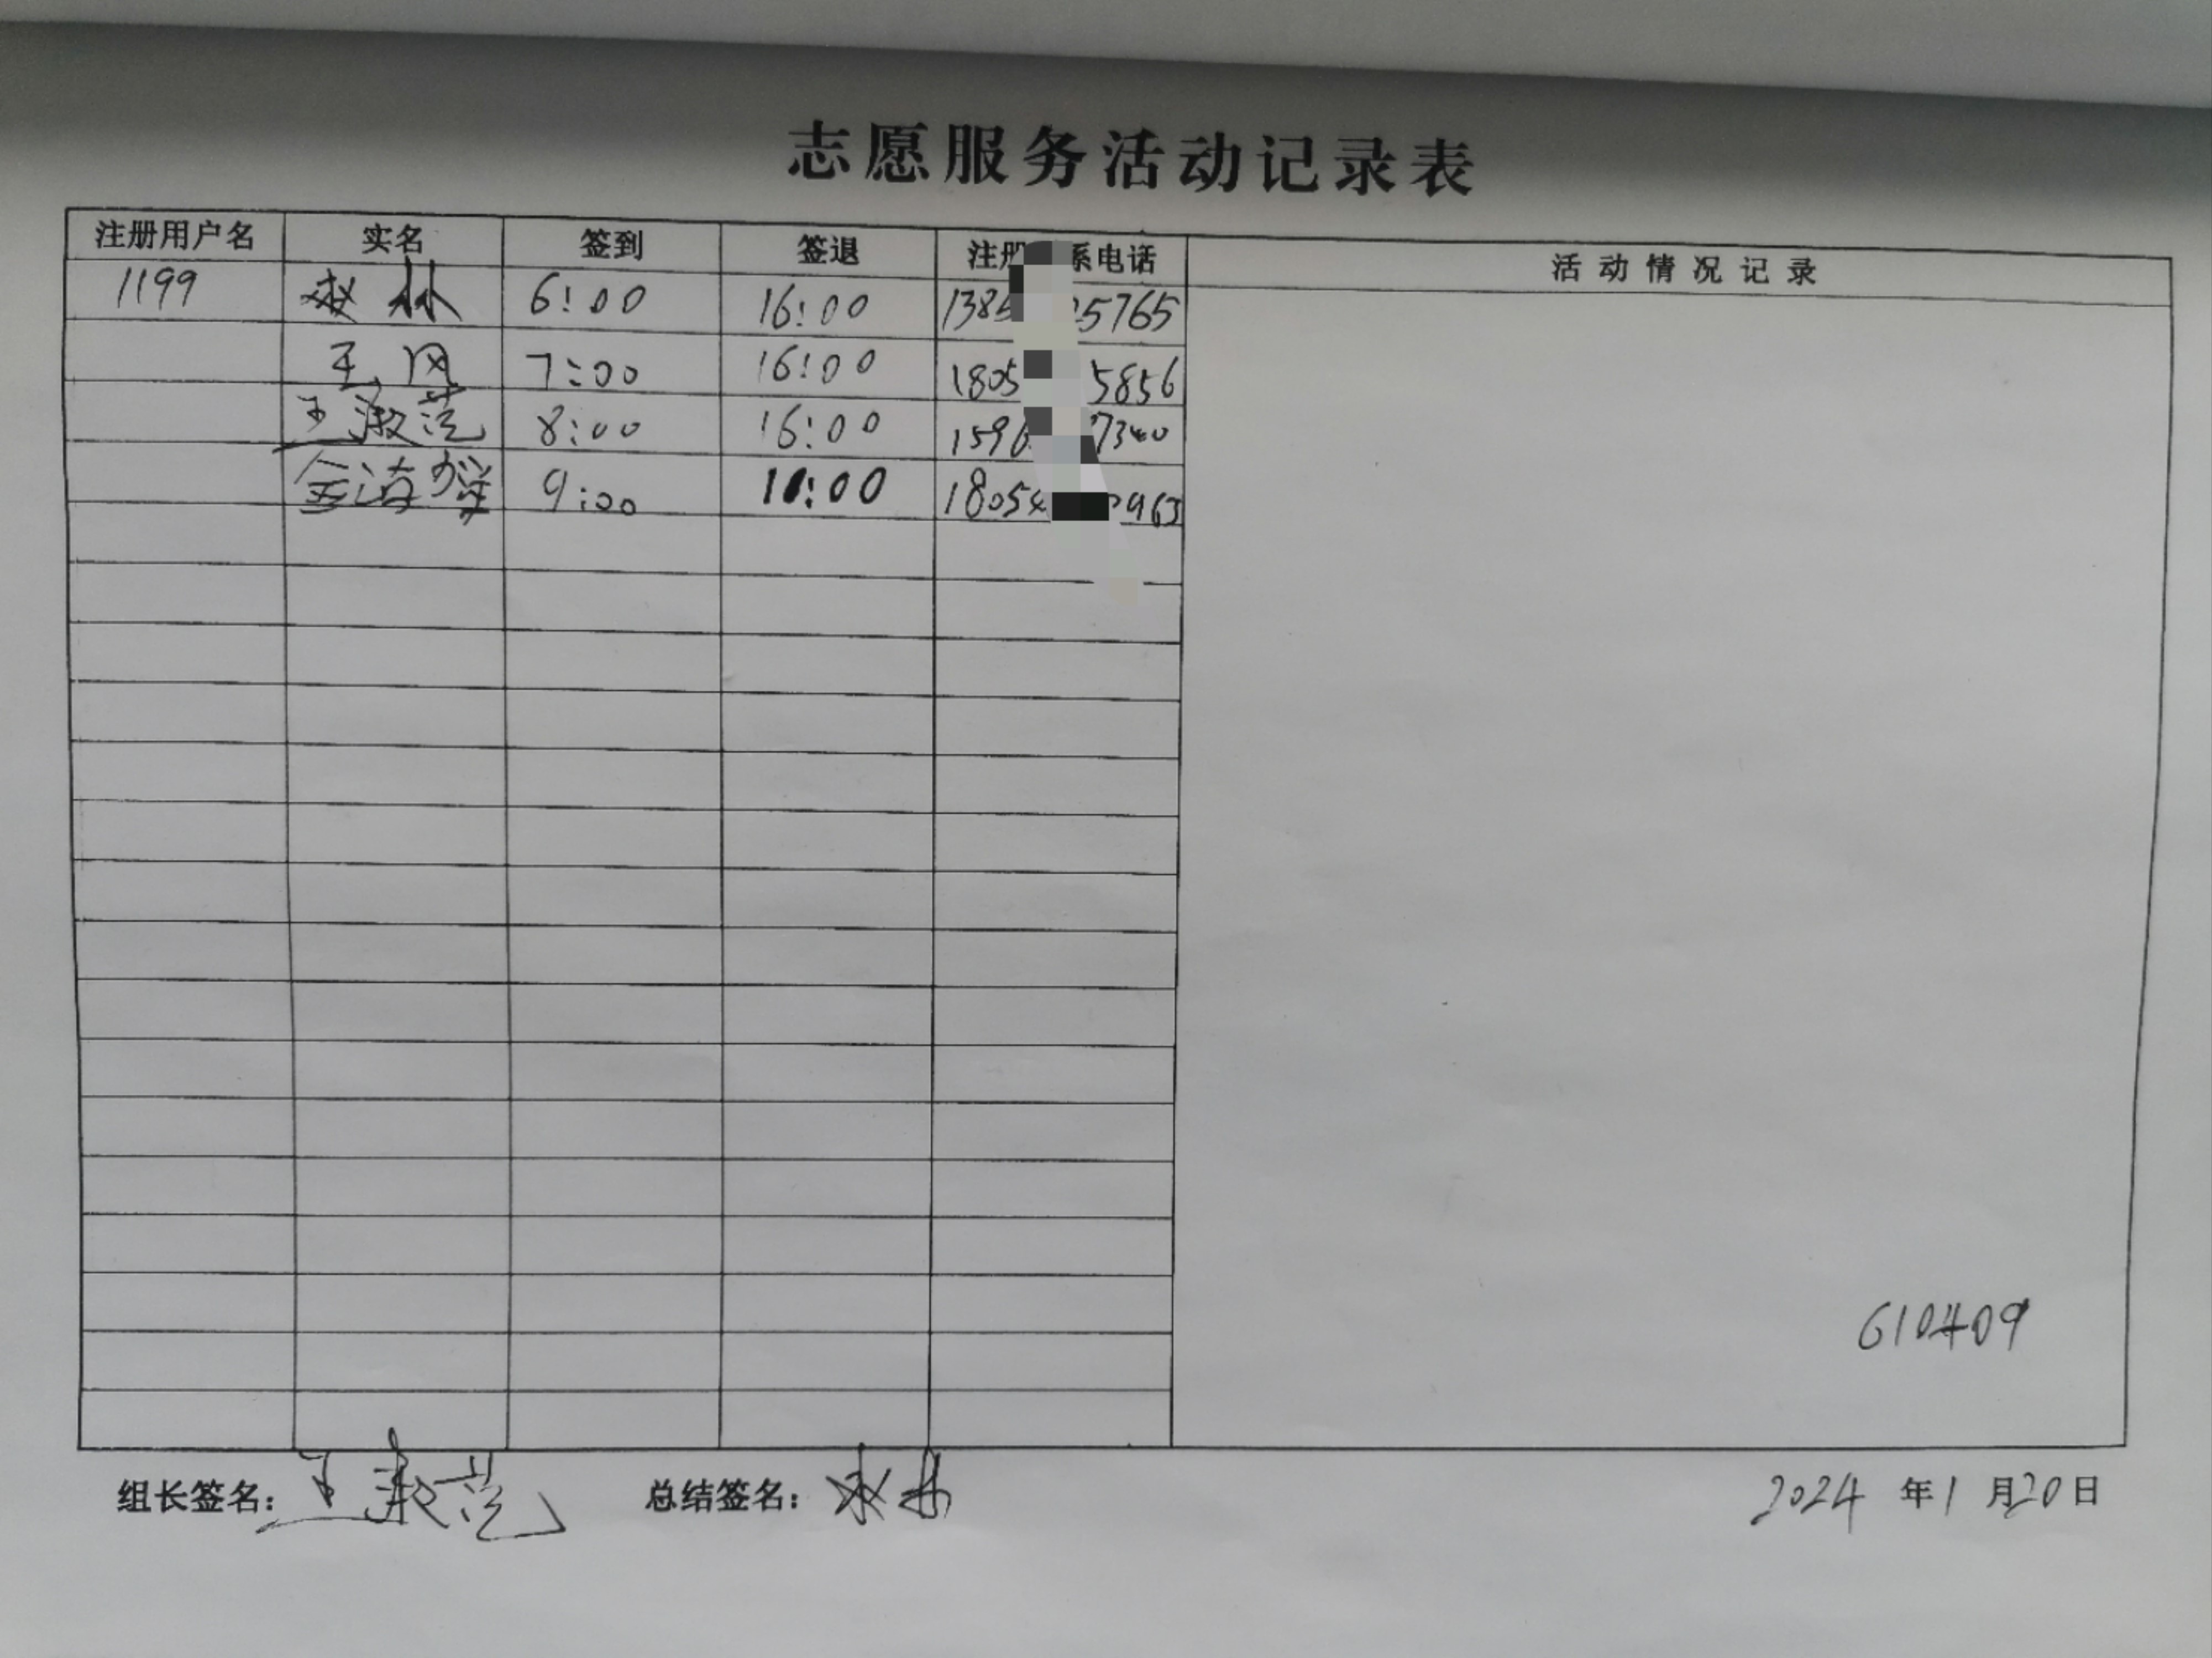 志愿服务活动记录表
注册用户名 实名 签到 签退 注册 系电话 活动情况记录
1199 赵林 6:00 16:00 1385 5765
王风 7:00 16:00 1805 5856
王淑范 8:00 16:00 1596 7340
9:00 10:00 18054 963
610409
组长签名: 王淑范 总结签名: 2024 年 1 月 20 日